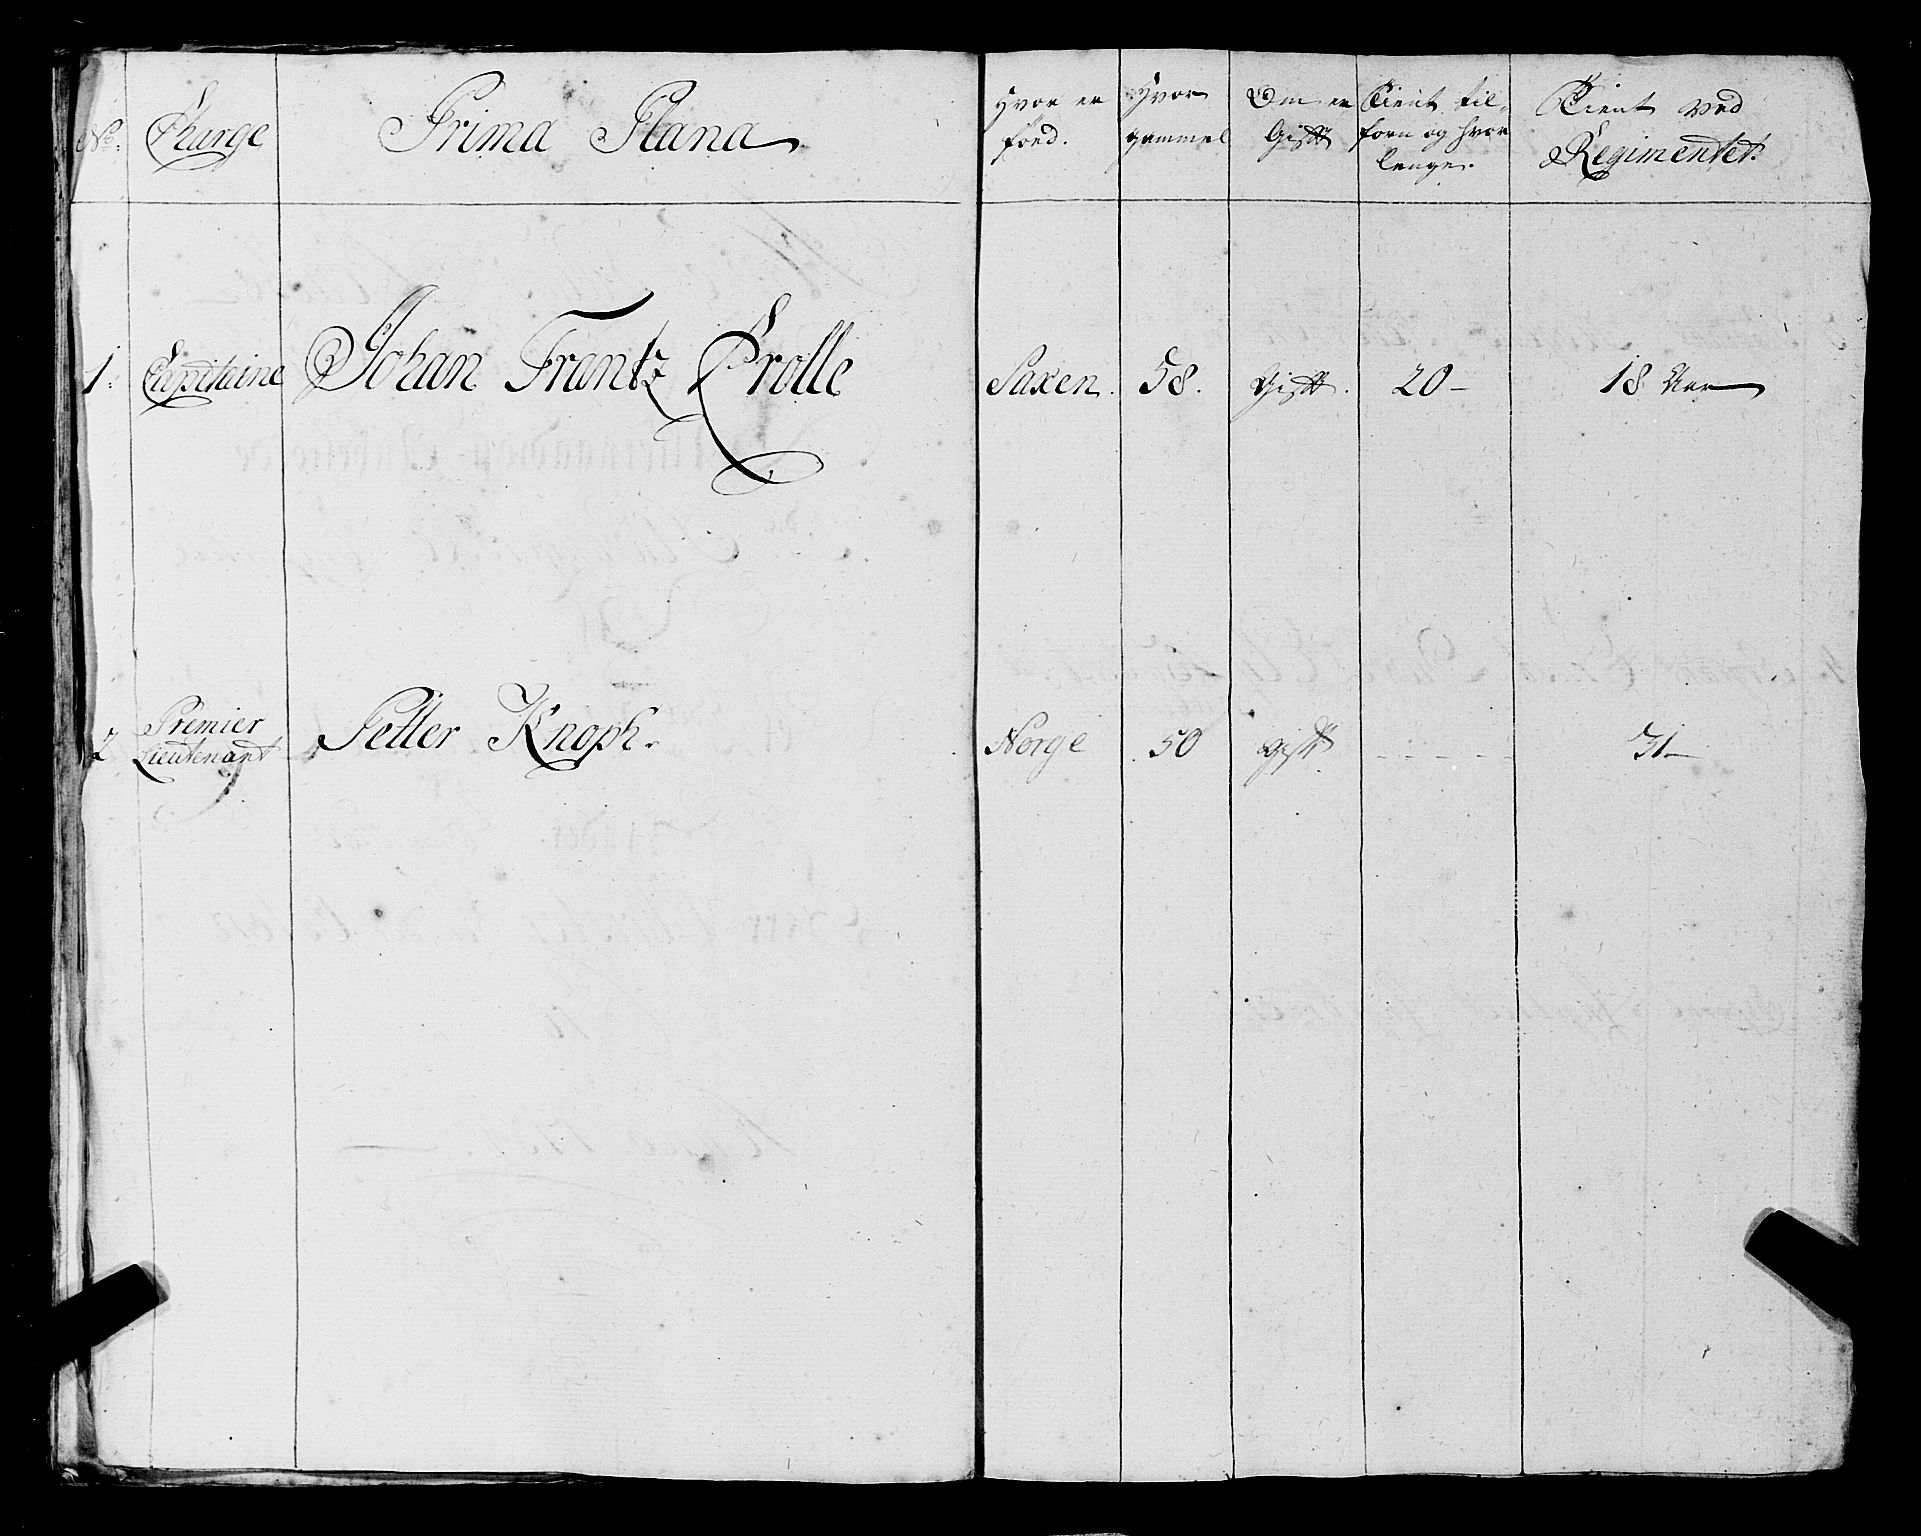 No. Charge Prima Plana Hvor er Hvor Om er Tient til- Tient ved
föed. gammel Gift forn og hvor Regimentet.
lenge.
1. Capitaine Johan Frantz Crolle Saxen. 58. Gift. 20- 18 Aar
Premier
2 Lieutenant Petter Knoph. Norge 50 gift - - - - - 31-